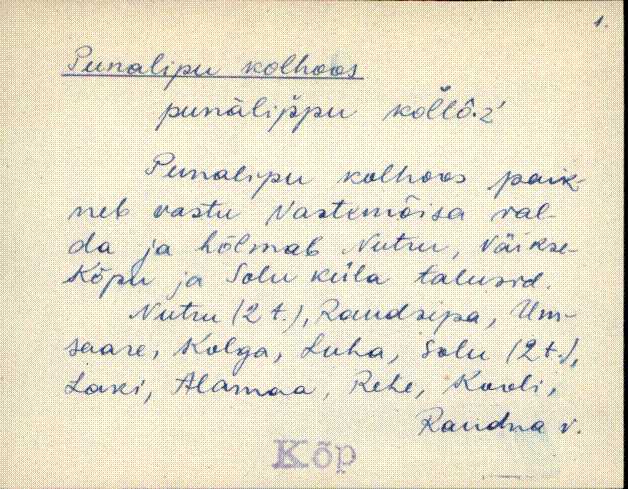 1.
Punalipu kolhoos
punàlip̆pu kol̆lô·ź
Punalipu kolhoos paik-
neb vastu Vastemõisa val-
da ja hõlmab Nutru, Väikse-
Kõpu ja Solu küla talusid.
Nutru (2 t.), Raudsepa, Um-
saare, Kolga, Luha, Solu (2 t.),
Laksi, Alamaa, Rehe, Kooli,
Raudna v.
Kõp